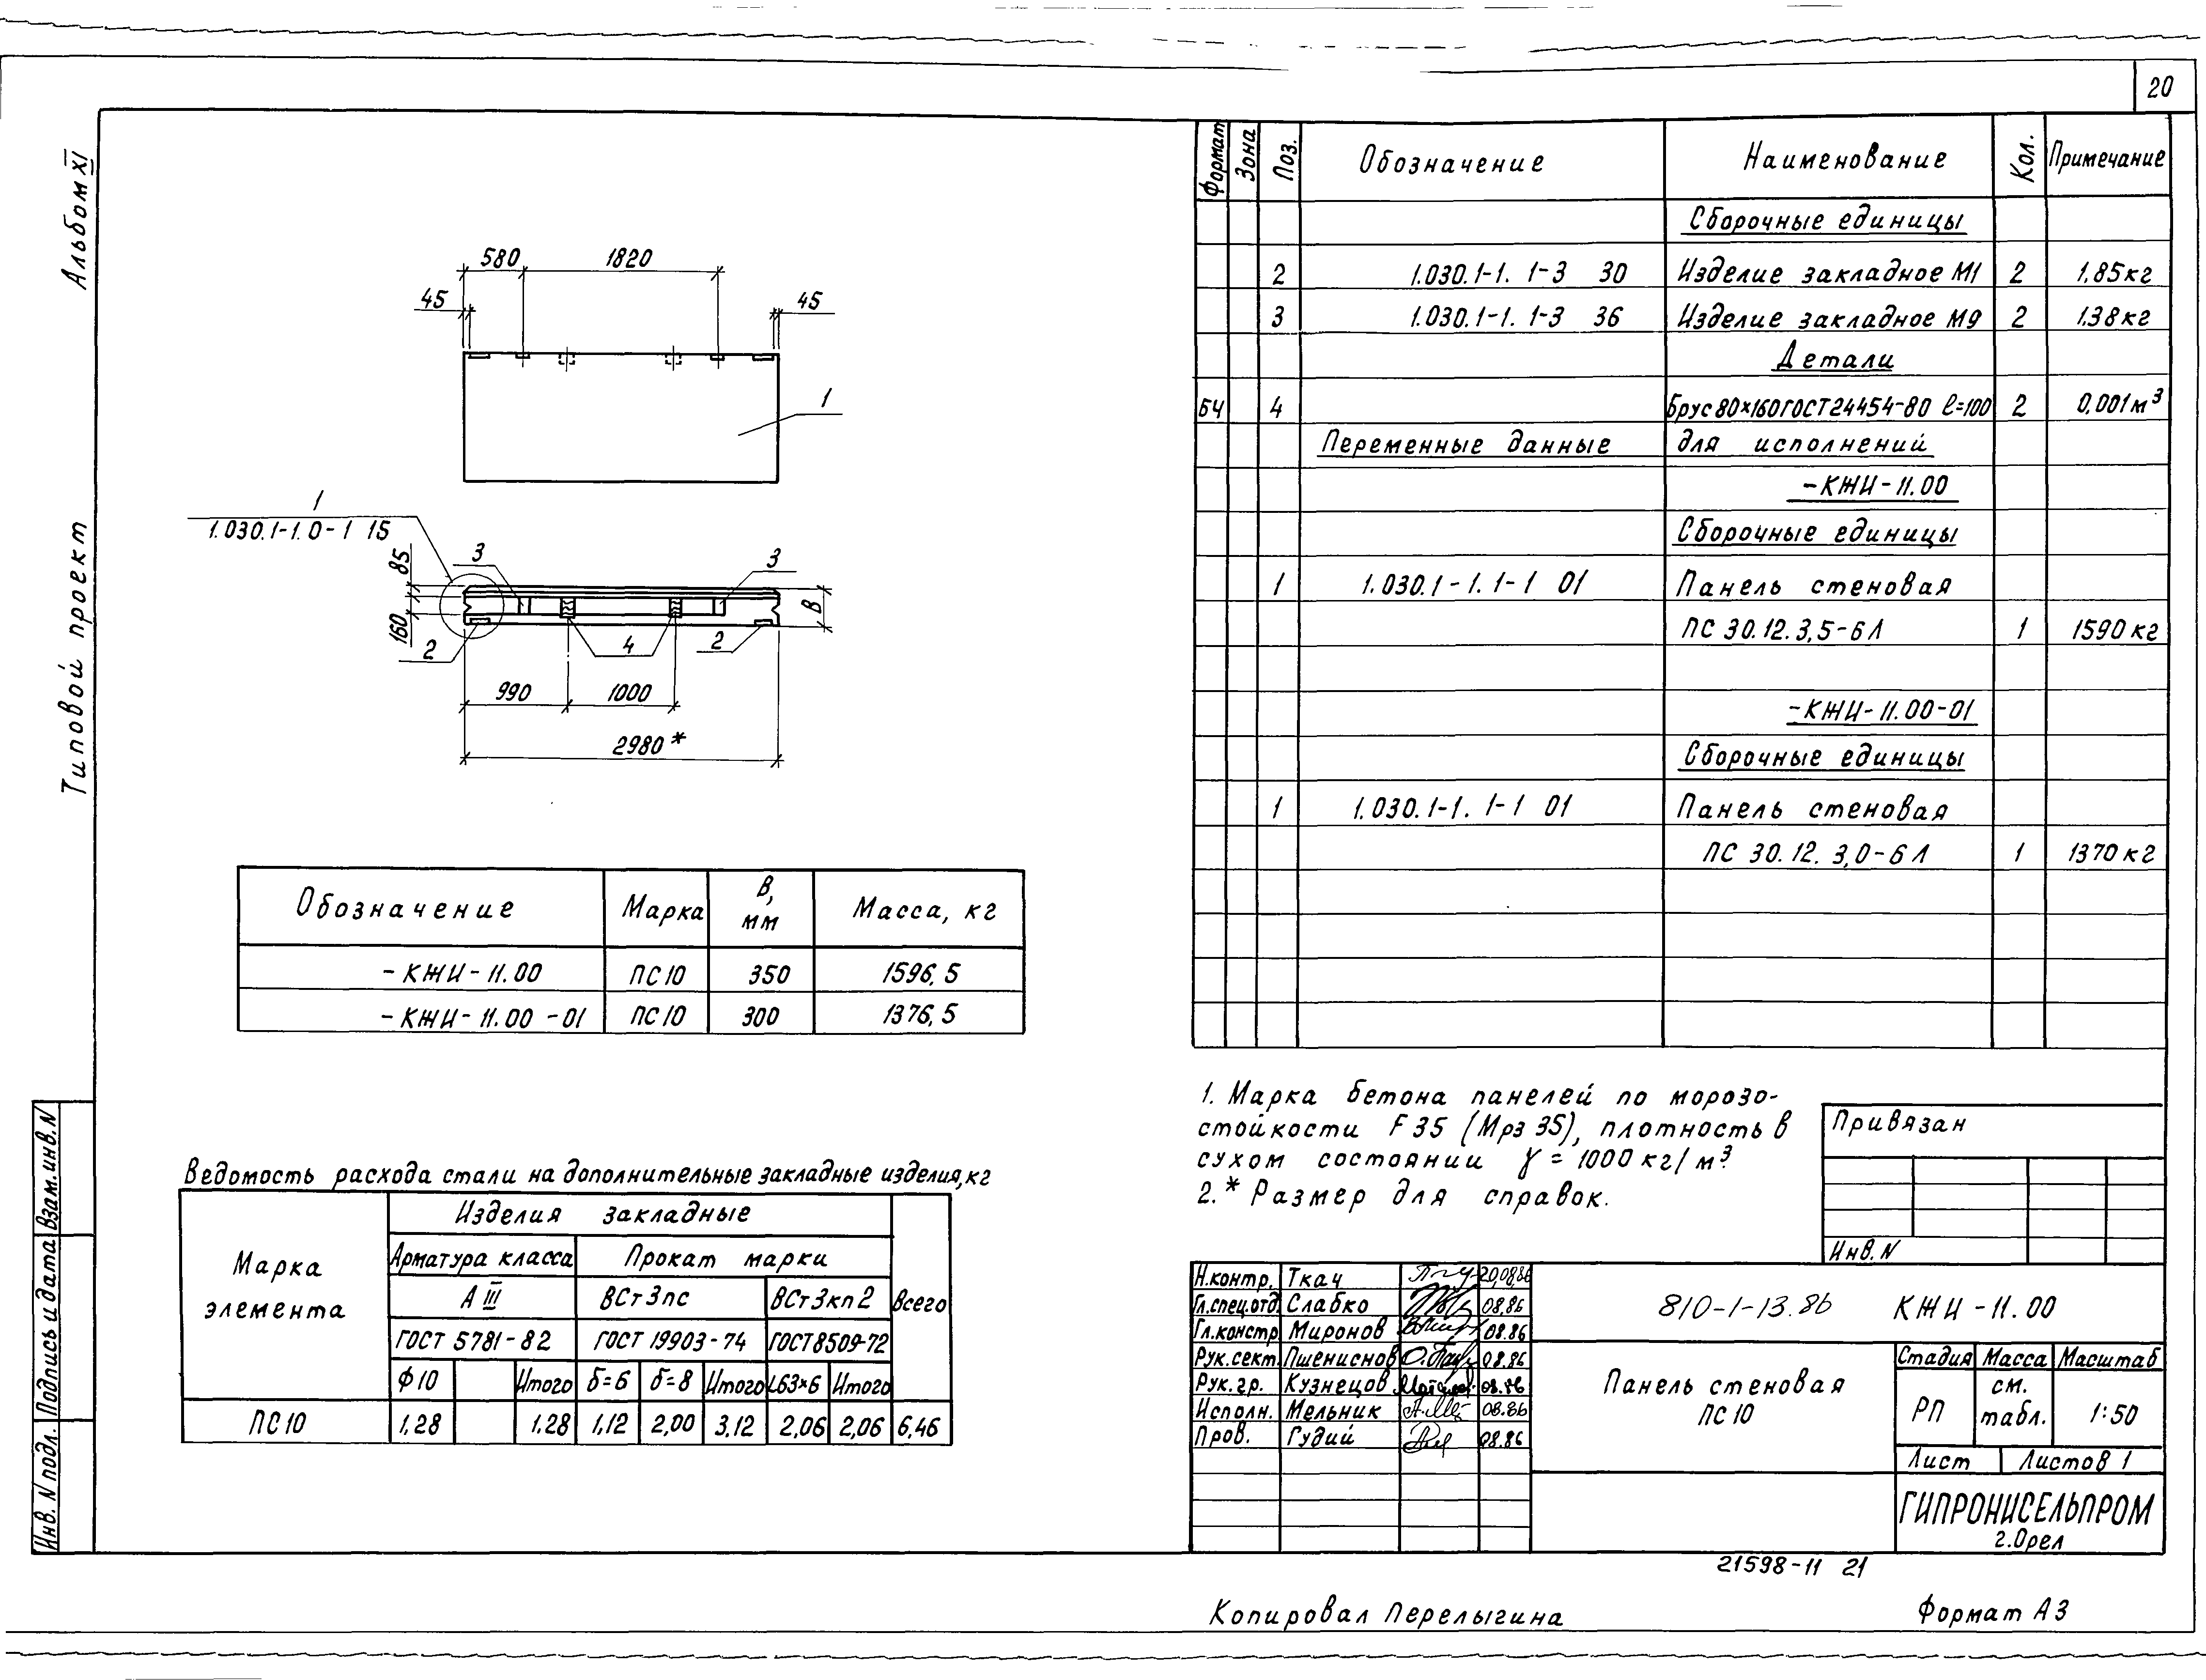 20
Альбом XI
Типовой проект
Инв. N подл. Подпись и дата Взам. инв. N
580 1820
45 45
1
1
1.030.1-1.0-1 15
85 3 3 В
160 2 4 2
990 1000
2980*
Обозначение Марка В, мм Масса, кг
-КЖИ-11.00 ПС10 350 1596,5
-КЖИ-11.00-01 ПС10 300 1376,5
Ведомость расхода стали на дополнительные закладные изделия, кг
Марка элемента Изделия закладные Всего
Арматура класса Прокат марки
А III ВСт3пс ВСт3кп2
ГОСТ 5781-82 ГОСТ 19903-74 ГОСТ 8509-72
Ф10 Итого δ=6 δ=8 Итого L63×6 Итого
ПС10 1,28 1,28 1,12 2,00 3,12 2,06 2,06 6,46
Формат Зона Поз. Обозначение Наименование Кол. Примечание
Сборочные единицы
2 1.030.1-1. 1-3 30 Изделие закладное М1 2 1,85кг
3 1.030.1-1. 1-3 36 Изделие закладное М9 2 1.38кг
Детали
БЧ 4 Брус 80×160 ГОСТ 24454-80 ℓ=100 2 0,001м³
Переменные данные для исполнений
-КЖИ-11.00
Сборочные единицы
1 1.030.1-1. 1-1 01 Панель стеновая
ПС 30.12.3,5-6Л 1 1590кг
-КЖИ-11.00-01
Сборочные единицы
1 1.030.1-1. 1-1 01 Панель стеновая
ПС 30.12. 3,0-6Л 1 1370кг
1. Марка бетона панелей по морозо-
стойкости F35 (Мрз 35), плотность в
сухом состоянии γ = 1000 кг/м³.
2.* Размер для справок.
Привязан
Инв. N
Н.контр. Ткач 20.08.86
Гл.спец.отд. Слабко 08.86
Гл.констр. Миронов 08.86
Рук.сект. Пшениснов 08.86
Рук.гр. Кузнецов 08.86
Исполн. Мельник 08.86
Пров. Гудий 08.86
810-1-13.86 КЖИ-11.00
Панель стеновая
ПС 10
Стадия Масса Масштаб
РП см. табл. 1:50
Лист Листов 1
ГИПРОНИСЕЛЬПРОМ
г.Орел
21598-11 21
Копировал Перелыгина Формат А3